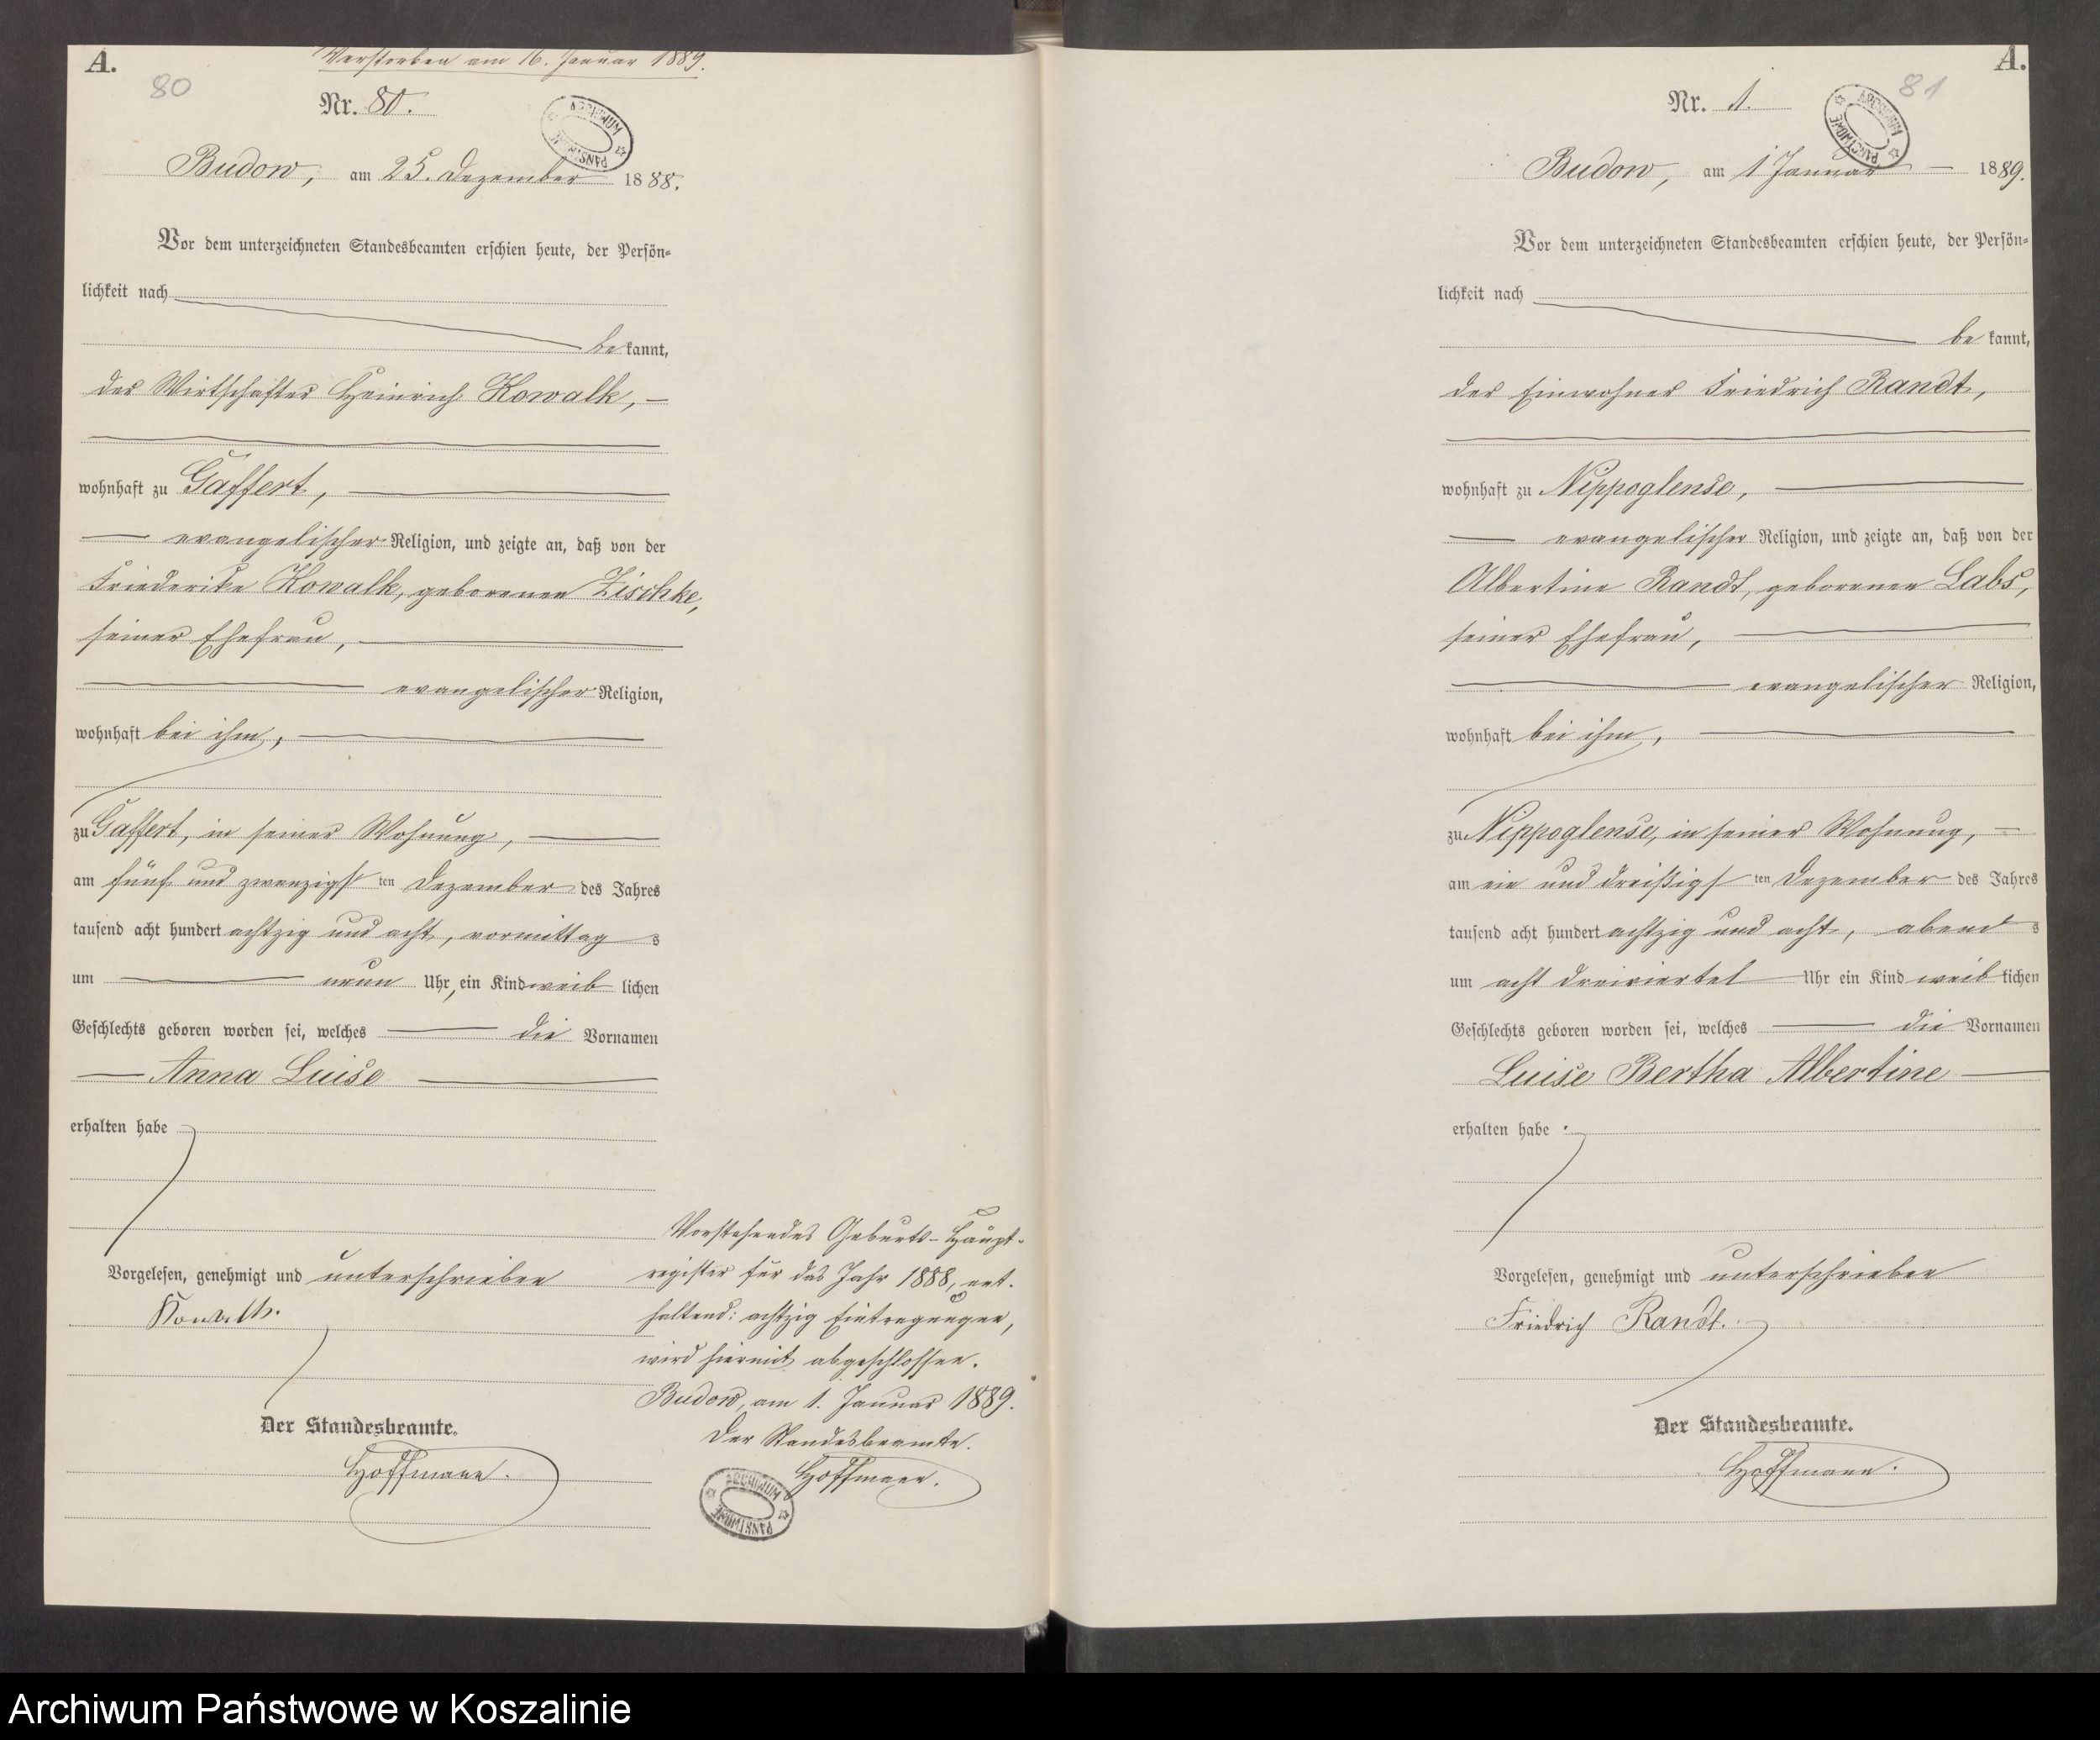 A.
Verstorben am 16. Januar 1889.
80
Nr. 80.
ARCHIWUM PAŃSTWOWE
Budow, am 25. Dezember 1888.
Vor dem unterzeichneten Standesbeamten erschien heute, der Persön-
lichkeit nach
bekannt,
der Wirtschafter Heinrich Kowalk,
wohnhaft zu Gaffert,
evangelischer Religion, und zeigte an, daß von der
Friederike Kowalk, geborenen Zischke,
seiner Ehefrau,
evangelischer Religion,
wohnhaft bei ihm,
zu Gaffert, in seiner Wohnung,
am fünf und zwanzigsten Dezember des Jahres
tausend acht hundert achtzig und acht, vormittags
um neun Uhr, ein Kind weiblichen
Geschlechts geboren worden sei, welches die Vornamen
Anna Luise
erhalten habe
Vorgelesen, genehmigt und unterschrieben
Kowalk.
Der Standesbeamte.
Hoffmann.
Vorstehendes Geburts-Haupt-
register für das Jahr 1888, ent-
haltend: achtzig Eintragungen,
wird hiermit abgeschlossen.
Budow, am 1. Januar 1889.
Der Standesbeamte.
Hoffmann.
ARCHIWUM PAŃSTWOWE
A.
81
Nr. 1.
ARCHIWUM PAŃSTWOWE
Budow, am 1 Januar 1889.
Vor dem unterzeichneten Standesbeamten erschien heute, der Persön-
lichkeit nach
bekannt,
der Einwohner Friedrich Randt,
wohnhaft zu Nippoglense,
evangelischer Religion, und zeigte an, daß von der
Albertine Randt, geborenen Labs,
seiner Ehefrau,
evangelischer Religion,
wohnhaft bei ihm,
zu Nippoglense, in seiner Wohnung,
am ein und dreißigsten Dezember des Jahres
tausend acht hundert achtzig und acht, abends
um acht dreiviertel Uhr ein Kind weiblichen
Geschlechts geboren worden sei, welches die Vornamen
Luise Bertha Albertine
erhalten habe
Vorgelesen, genehmigt und unterschrieben
Friedrich Randt.
Der Standesbeamte.
Hoffmann.
Archiwum Państwowe w Koszalinie